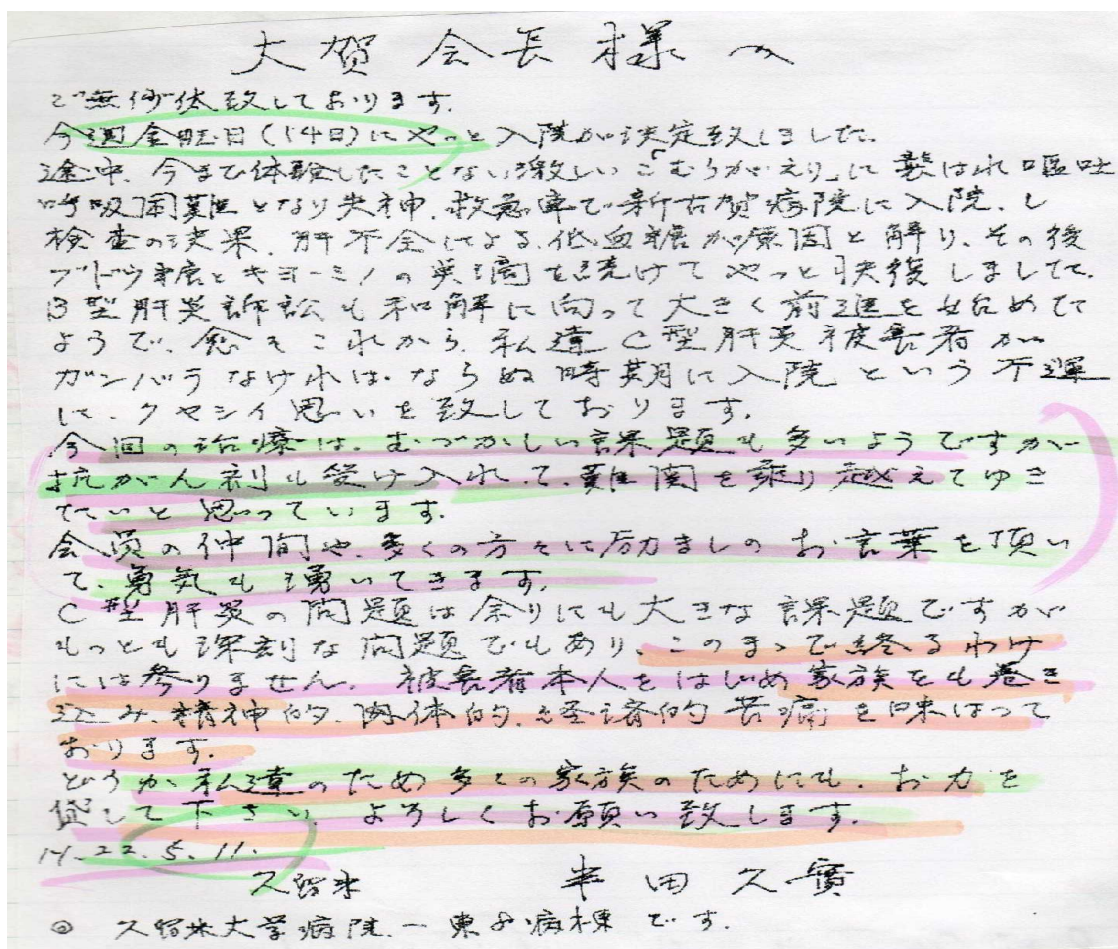 大賀会長様へ
ご無沙汰致しております.
今週金曜日(14日)にやっと入院が決定致しました.
途中、今まで体験したことない激しい「こむらがえり」に襲はれ嘔吐
呼吸困難となり失神、救急車で新古賀病院に入院、し
検査の決果、肝不全による、低血糖が原因と解り、その後
ブドウ糖とキョーミノの点滴を続けてやっと快復しました.
B型肝炎訴訟も和解に向って大きく前進を始めた
ようで、愈々これから、私達C型肝炎被害者が
ガンバラなければ、ならぬ時期に入院という不運
に、クヤシイ思いを致しております.
今回の治療は、むづかしい課題も多いようですが
抗がん剤も受け入れて、難関を乗り越えてゆき
たいと思っています.
会員の仲間や、多くの方々に励ましのお言葉を頂い
て、勇気も湧いてきます.
C型肝炎の問題は余りにも大きな課題ですが
もっとも深刻な問題でもあり、このまゝで終るわけ
には参りません. 被害者本人をはじめ家族をも巻き
込み、精神的、肉体的、経済的苦痛を味はって
おります.
どうか私達のため多くの家族のためにも、お力を
貸して下さい. よろしくお願い致します.
H.22.5.11.
久留米 半田久實
◎ 久留米大学病院、一東8病棟です.